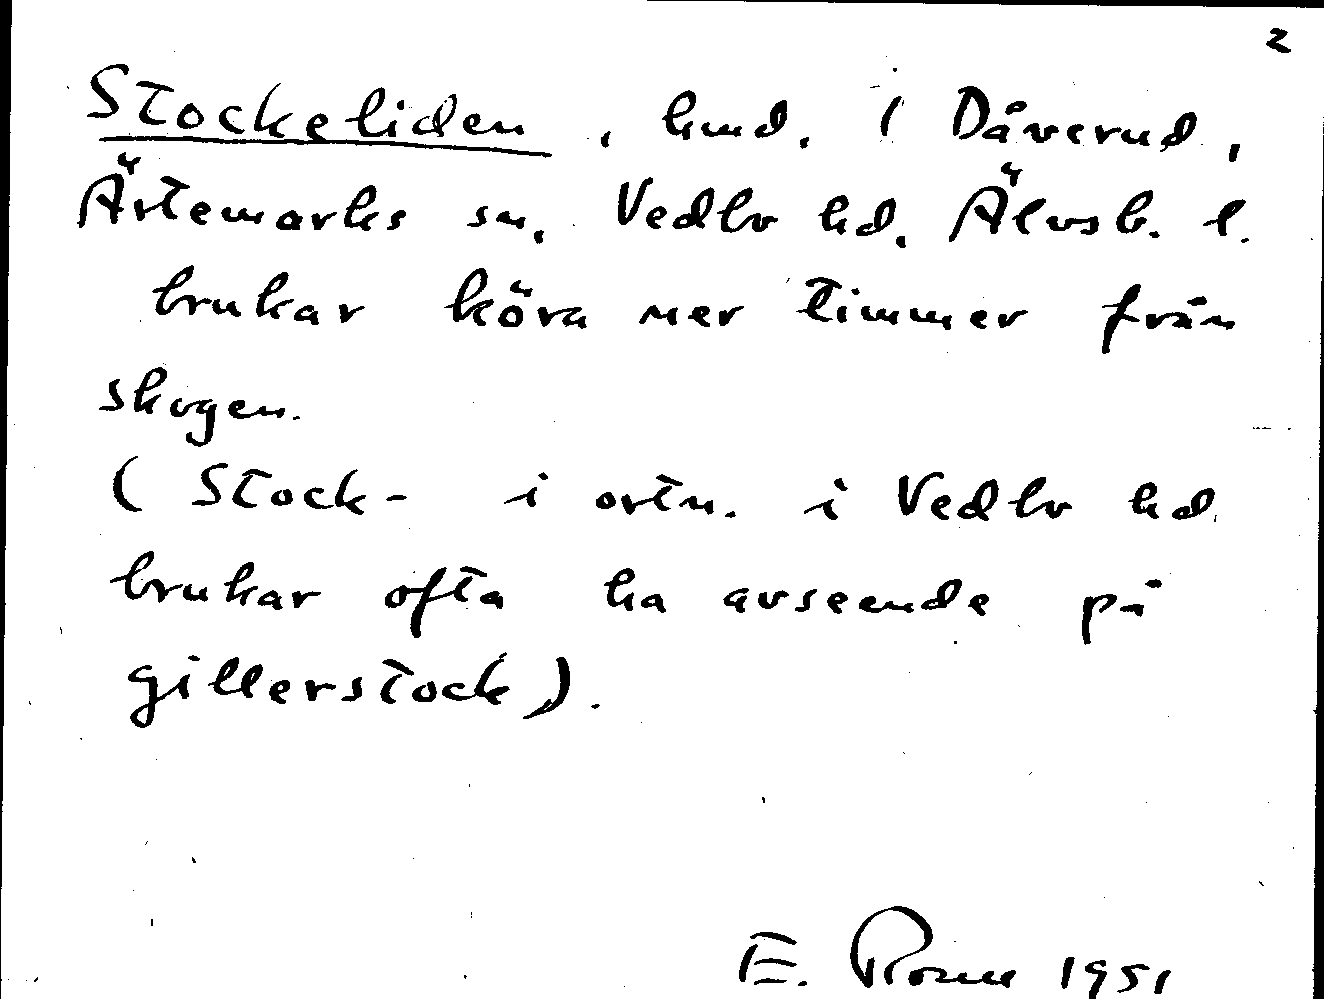 2
Stockeliden, hmd. i Dåverud,
Ärtemarks sn, Vedbo hd. Älvsb. l.
brukar köra ner timmer från
skogen.
(Stock- i ortn. i Vedbo hd
brukar ofta ha avseende på
gillerstock).
E. 1951